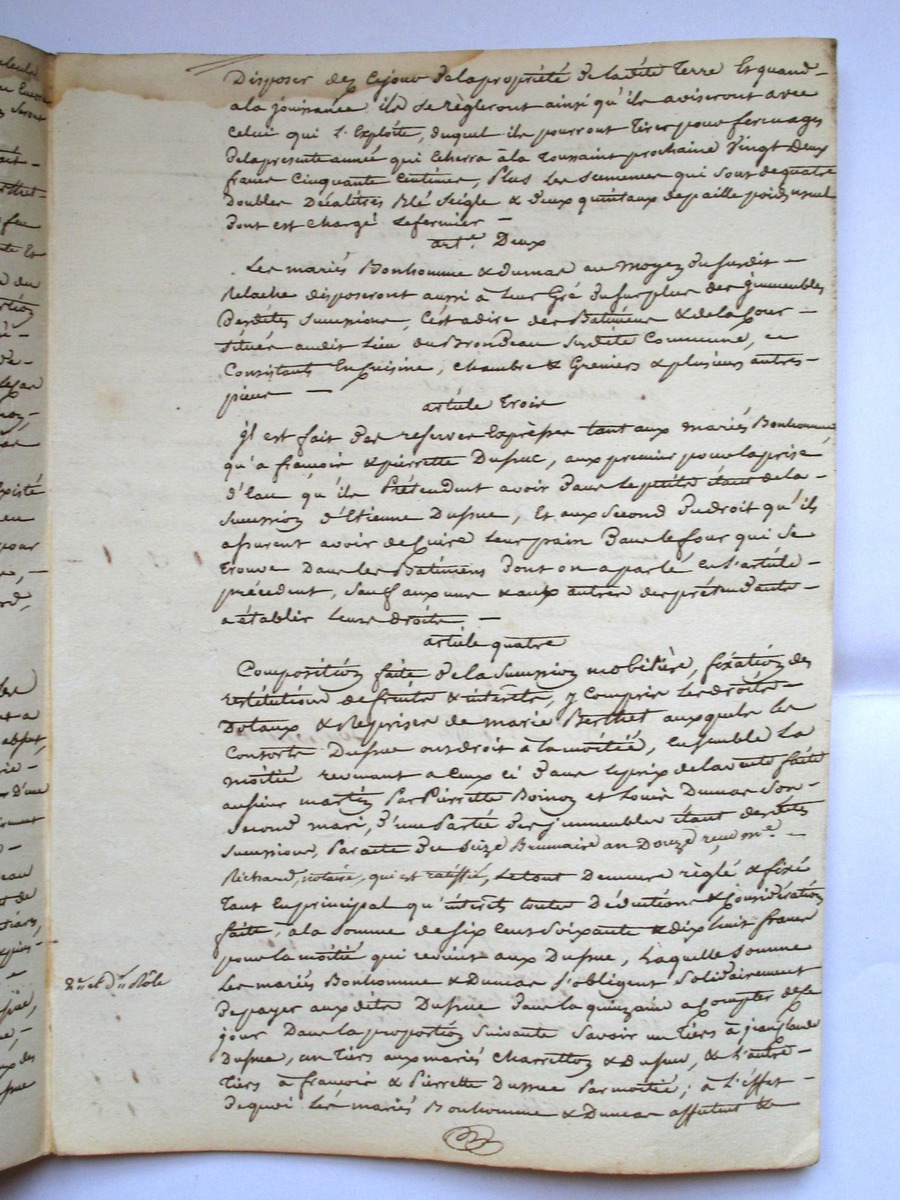 Disposer des cejour de la propriété de la dite Terre Et quand
a la jouissance ils se règleront ainsi qu'ils aviseront avec
Celui qui l'Exploite, duquel ils pourront tirer pour fermages
de la presente année qui Echerra à la toussaint prochaine Vingt Deux
francs Cinquante Centimes, Plus les semences qui sont de quatre
Doubles Décalitres Blé Seigle & deux quintaux de paille poids usuel
dont est chargé le fermier. —
art.e Deux
Les mariés Bonhomme & dumas au moyen du susdit —
Relache disposeront aussi à leur Gré du surplus des immeubles
Desdites successions, C'est a dire des Batimens & de la Cour —
situés audit Lieu du Brondeau susdite Commune, en
Consistants En Cuisine, chambre & Greniers & plusieurs autres
pieces —
article trois
Il est fait des reserves Expresses tant aux mariés Bonhomme
qu'a francois & pierrette Dussuc, aux premiers pour la prise
d'Eau qu'ils Prétendent avoir dans le de la
succession d'Etienne Dussuc, Et aux second du droit qu'ils
assurent avoir de Cuire leur pain Dans le four qui se
trouve Dans les Batimens Dont on a parlé en l'article
précédent, sauf aux uns & aux autres des prétendants
a établir leurs droits. —
article quatre
Composition faite de la succession mobilière, fixation des
restitutions de fruits & interets, y compris les droits
Dotaux & Reprises de marie Berthet auxquels les
Consorts Dussuc ont droit à la moitié, ensemble la
moitié revenant a ceux ci dans le prix de la vente faite
au sieur martin Par Pierrette Boinon et Louis Dumas son
second mari, d'une Partie des immeubles étant desdites
successions, Par acte du seize Brumaire an Douze reçu m.e
Richard, notaire, qui est ratiffié, le tout Demeure règlé & fixé
tant En principal qu'interets toutes Déductions & Considération
faite, à la somme de six cent soixante & dix huit francs
pour la moitié qui revient aux Dussuc, Laquelle somme
Les mariés Bonhomme & Dumas s'obligent solidairement
De payer aux dits Dussuc dans la quinzaine a compter de ce
jour Dans la proportion suivante savoir un tiers à jean claude
Dussuc, un tiers aux mariés Charretton & Dussuc, & l'autre
tiers à francois & Pierrette Dussuc Par moitié; à l'effet
de quoi Les mariés Bonhomme & Dumas affectent &
2.e et D.r Rôle